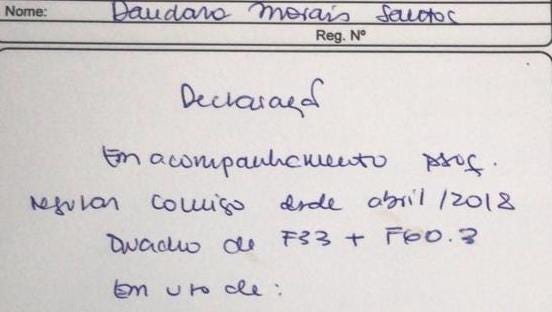 Nome: Dandara Morais Santos
Reg. Nº
Declaração
Em acompanhamento psiq.
regular comigo desde abril/2018
Quadro de F33 + F60.3
Em uso de: